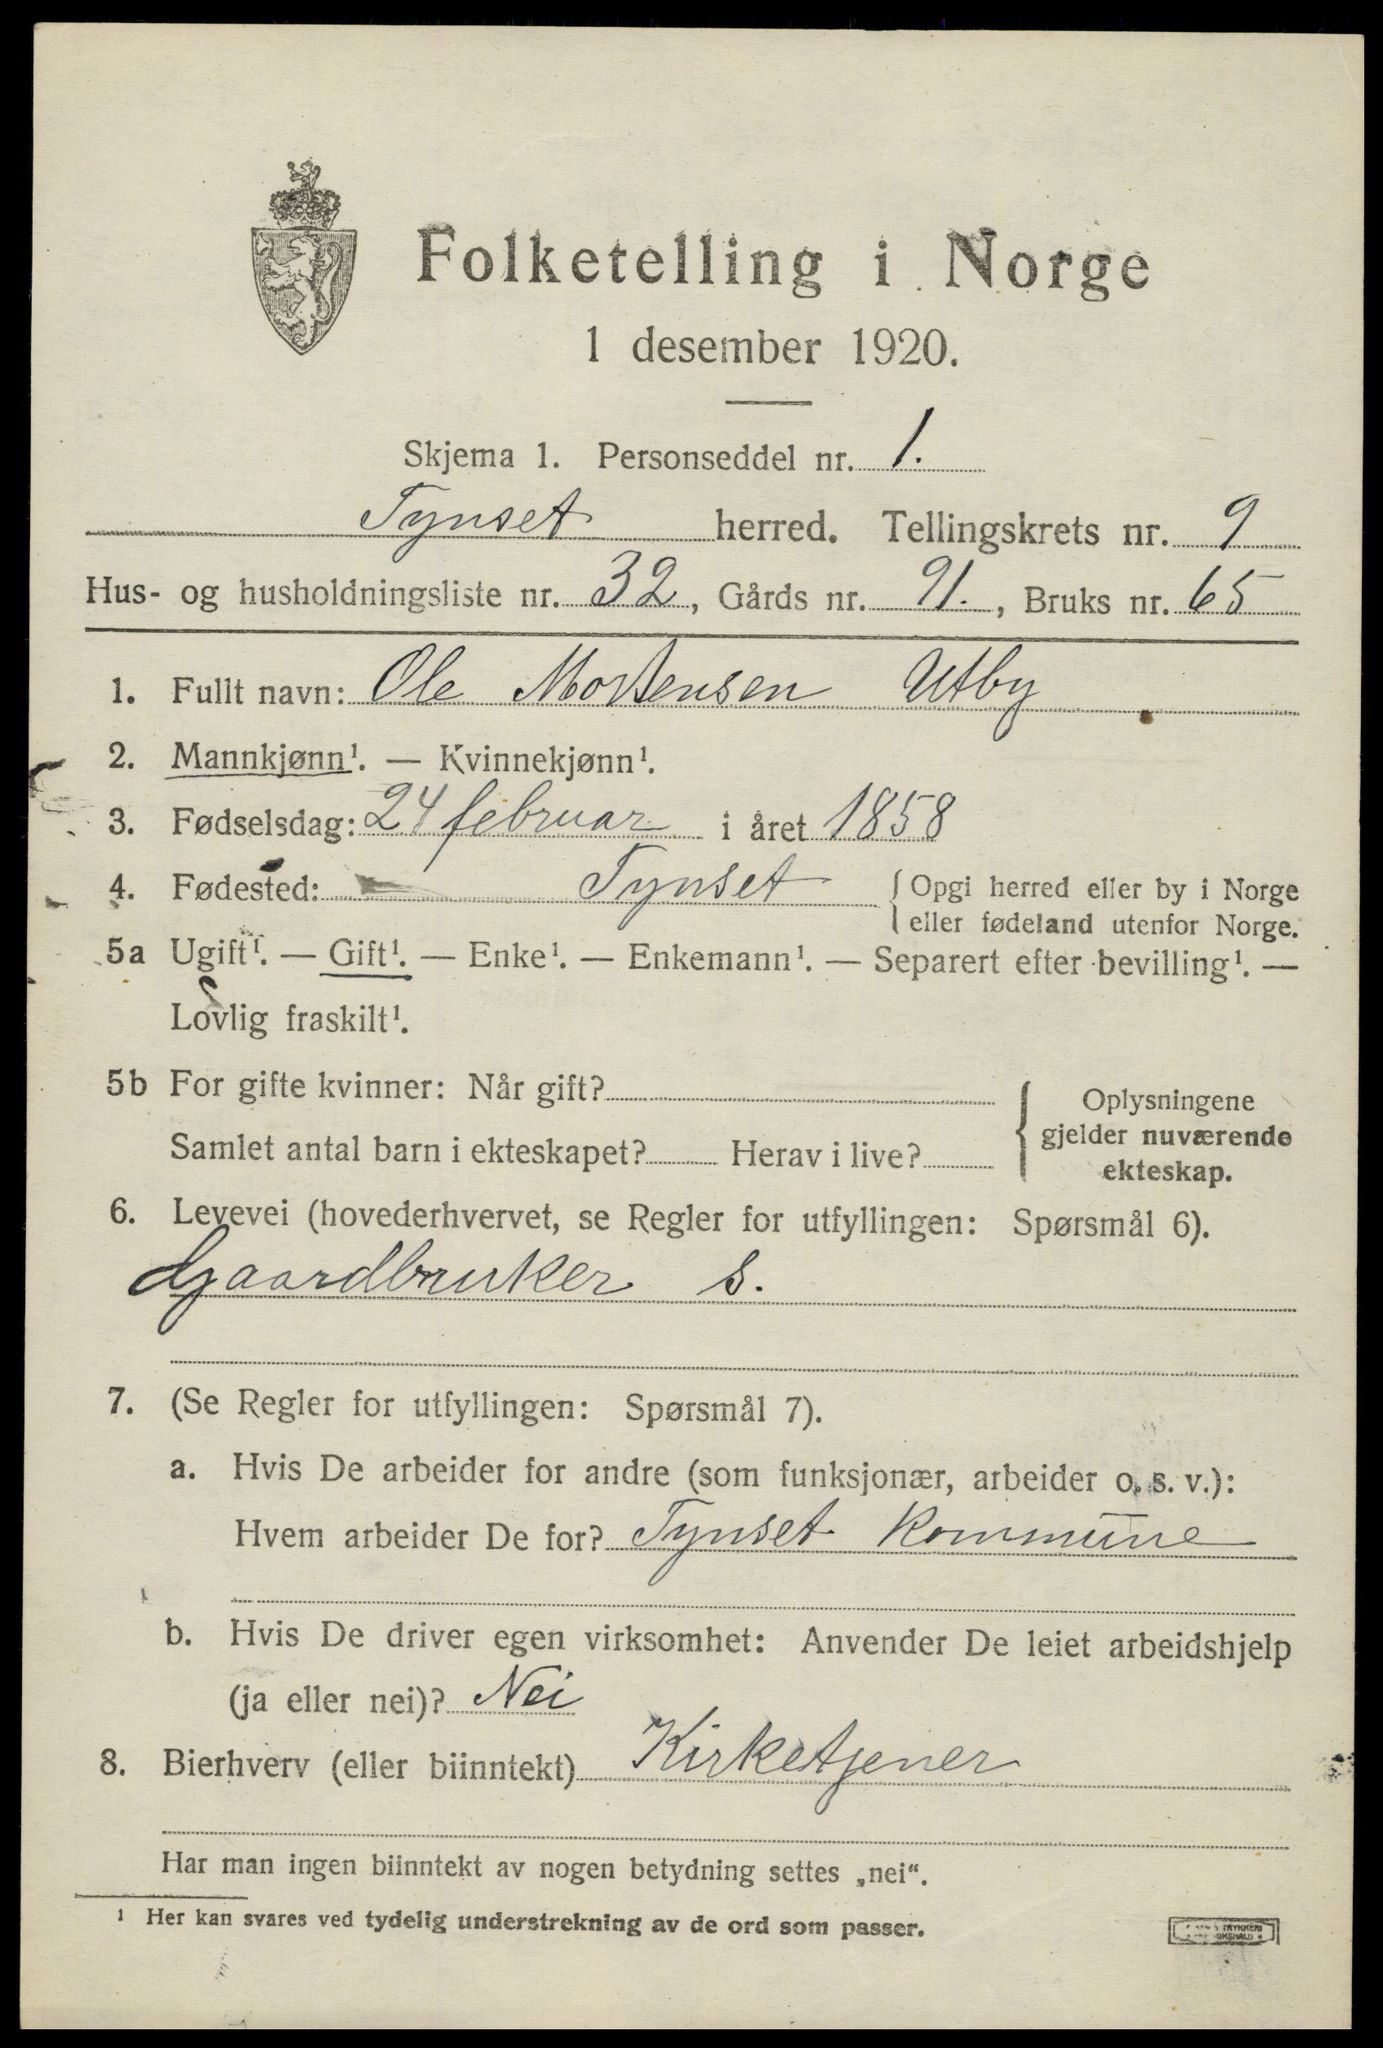 Folketelling i Norge
1 desember 1920.
Skjema 1. Personseddel nr. 1.
Tynset herred. Tellingskrets nr. 9
Hus- og husholdningsliste nr. 32, Gårds nr. 91., Bruks nr. 65
1. Fullt navn: Ole Mortensen Utby
2. Mannkjønn¹. — Kvinnekjønn¹.
3. Fødselsdag: 24 februar i året 1858
4. Fødested: Tynset { Opgi herred eller by i Norge
eller fødeland utenfor Norge.
5a Ugift¹. — Gift¹. — Enke¹. — Enkemann¹. — Separert efter bevilling¹. —
Lovlig fraskilt¹.
5b For gifte kvinner: Når gift?
Samlet antal barn i ekteskapet? Herav i live?
Oplysningene
gjelder nuværende
ekteskap.
6. Levevei (hovederhvervet, se Regler for utfyllingen: Spørsmål 6).
Gaardbruker s.
7. (Se Regler for utfyllingen: Spørsmål 7).
a. Hvis De arbeider for andre (som funksjonær, arbeider o. s. v.):
Hvem arbeider De for? Tynset Kommune
b. Hvis De driver egen virksomhet: Anvender De leiet arbeidshjelp
(ja eller nei)? Nei
8. Bierhverv (eller biinntekt) Kirketjener
Har man ingen biinntekt av nogen betydning settes „nei“.
¹ Her kan svares ved tydelig understrekning av de ord som passer.